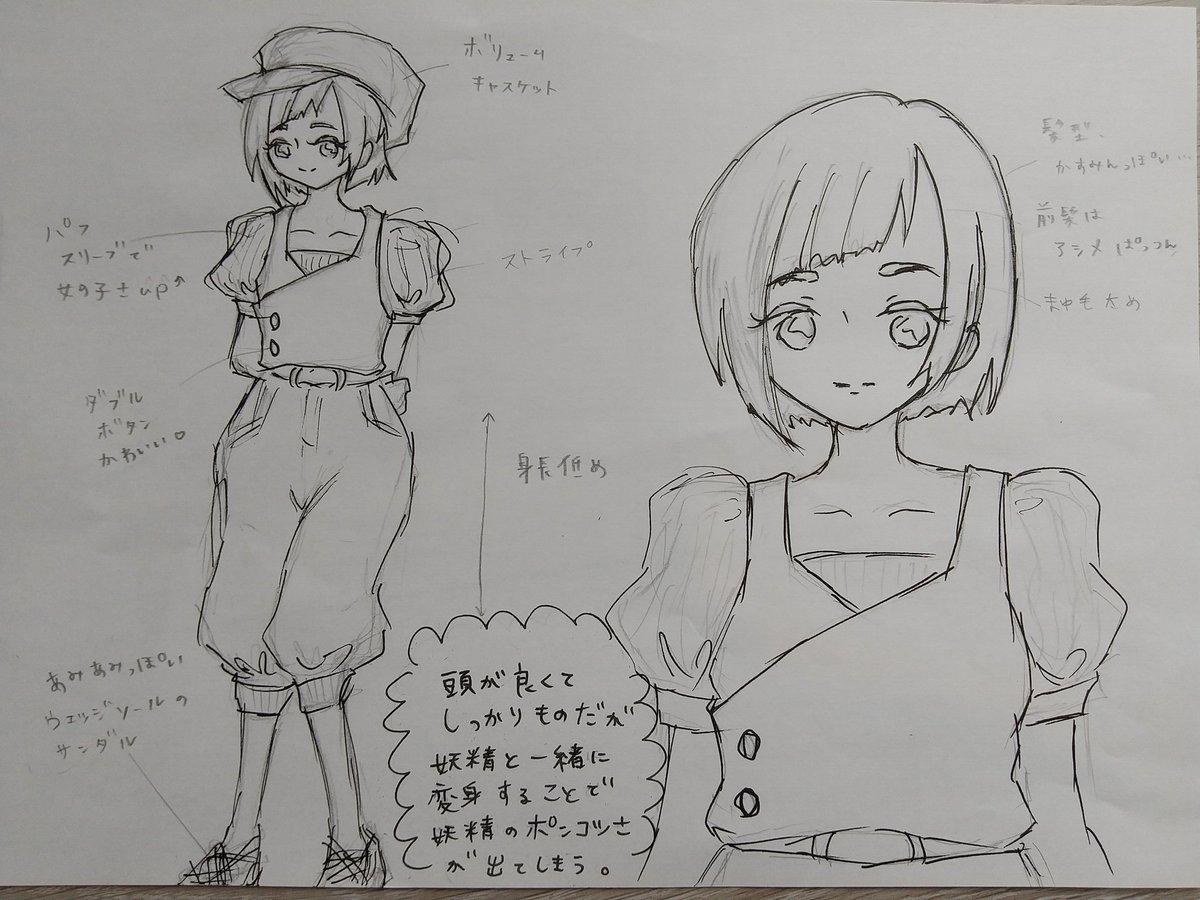 ボリューム
キャスケット
パフ
スリーブで
女の子さup↗
ストライプ
ダブル
ボタン
かわいい♡
身長低め
あみあみっぽい
ウェッジソールの
サンダル
髪型、
かすみんっぽい…
前髪は
アシメぱっつん
まゆ毛太め
頭が良くて
しっかりものだが
妖精と一緒に
変身することで
妖精のポンコツさ
が出てしまう。